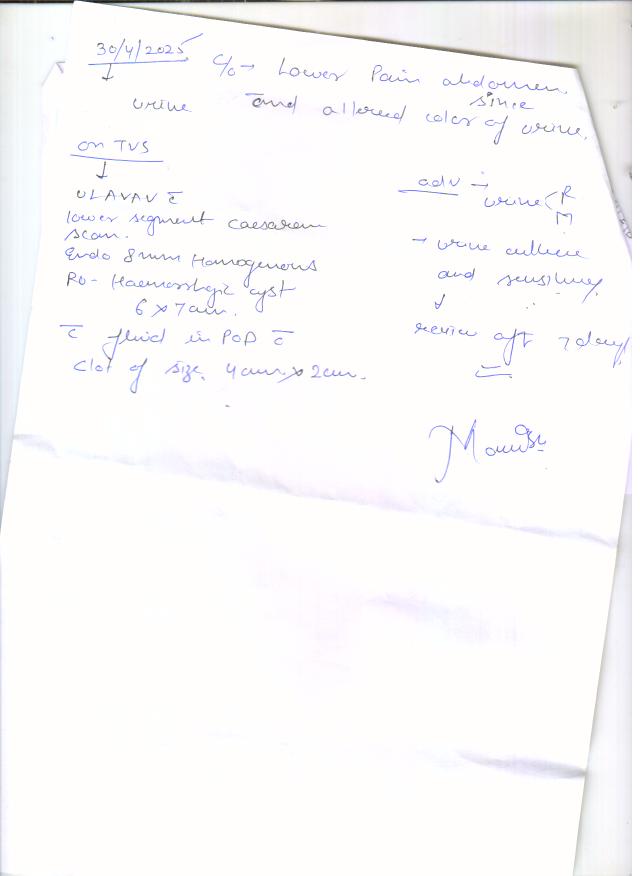 30/4/2025 C/o → Lower Pain abdomen
since
urine and altered color of urine.
on TVS
↓
ULAVAV c̄
lower segment caesarean
scan.
Endo 8mm Homogenous
RO - Haemorrhagic cyst
6 x 7 cm.
c̄ fluid in POD c̄
clot of size 4cm x 2cm.
adv → urine < R
M
→ urine culture
and sensitivity
↓
review aft 7 days